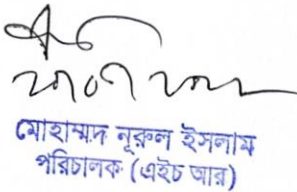 মোহাম্মদ নূরুল ইসলাম
পরিচালক (এইচ আর)